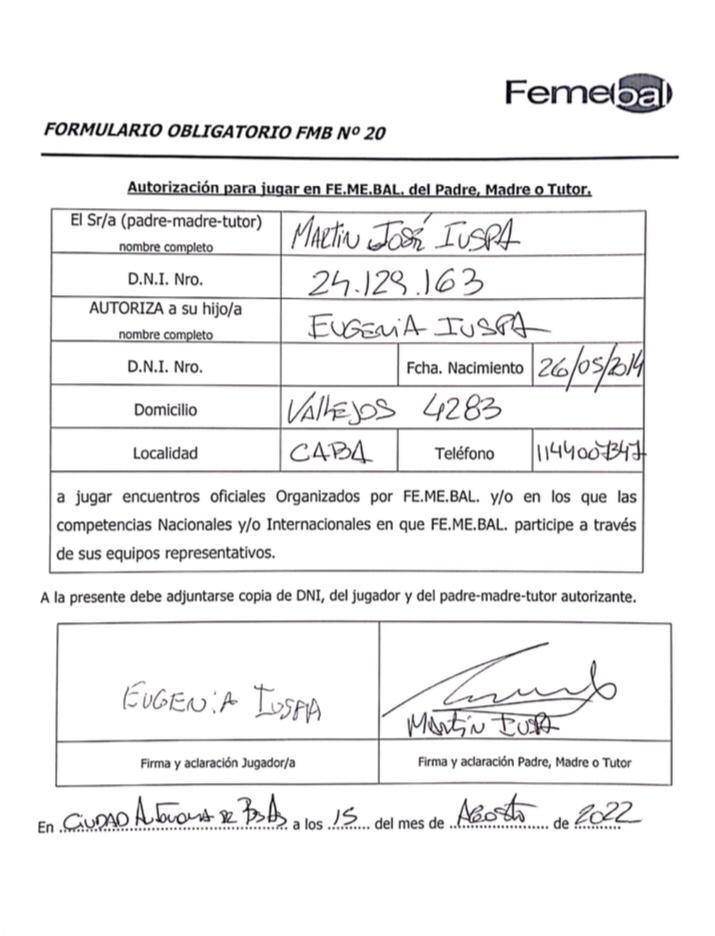 Femebal
FORMULARIO OBLIGATORIO FMB Nº 20
Autorización para jugar en FE.ME.BAL. del Padre, Madre o Tutor.
El Sr/a (padre-madre-tutor)
nombre completo
MARTIN JOSÉ IUSPA
D.N.I. Nro.
24.129.163
AUTORIZA a su hijo/a
nombre completo
EUGENIA IUSPA
D.N.I. Nro.
Fcha. Nacimiento
26/05/2014
Domicilio
VALLEJOS 4283
Localidad
CABA
Teléfono
1144007347
a jugar encuentros oficiales Organizados por FE.ME.BAL. y/o en los que las
competencias Nacionales y/o Internacionales en que FE.ME.BAL. participe a través
de sus equipos representativos.
A la presente debe adjuntarse copia de DNI, del jugador y del padre-madre-tutor autorizante.
EUGENIA IUSPA
MARTIN IUSPA
Firma y aclaración Jugador/a
Firma y aclaración Padre, Madre o Tutor
En CIUDAD AUTONOMA DE BsAs a los 15 del mes de AGOSTO de 2022